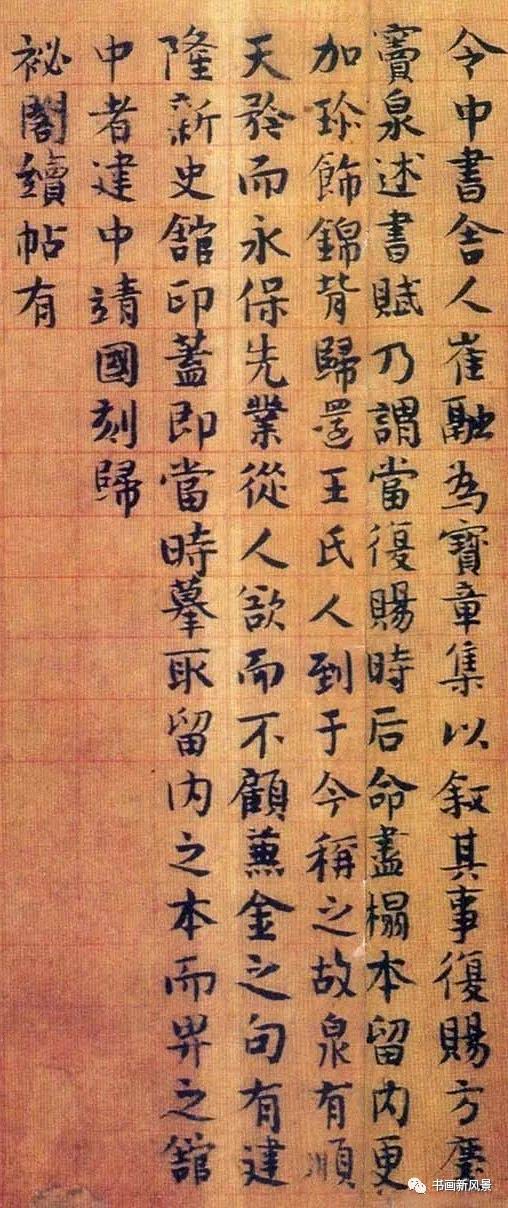 令中書舍人崔融為寶章集以敘其事復賜方慶
竇臮述書賦乃謂當復賜時后命盡榻本留内更
加珎飾錦背歸還王氏人到于今稱之故臮有順
天矜而永保先業從人欲而不顧蒹金之句有建
隆新史舘印蓋即當時摹取留内之本而畀之舘
中者建中靖國刻歸
祕閣續帖有
书画新风景